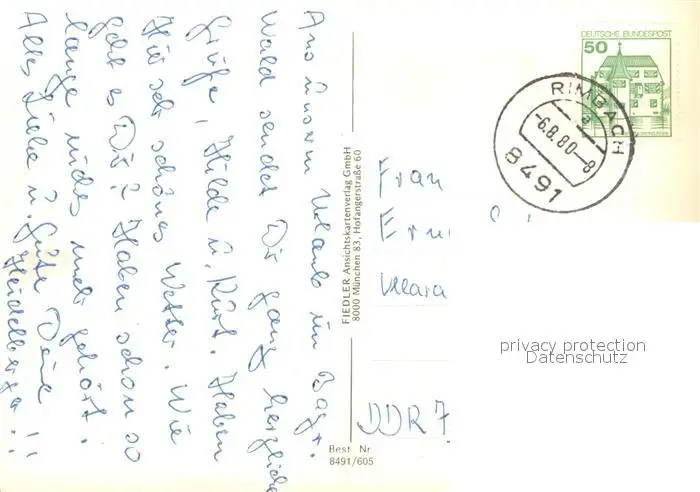 Aus unserm Urlaub im Bayr.
Wald sendet Dir ganz herzliche
Grüße, Hilde u. Kurt. Haben
Hier sehr schönes Wetter. Wie
geht es Dir? Haben schon so
lange nichts mehr gehört.
Alles Liebe u. Gute Deine
Heidelberger!!
FIEDLER Ansichtskartenverlag GmbH
8000 München 83, Hofangerstraße 60
Best. Nr.
8491/605
DEUTSCHE BUNDESPOST
50
RIMBACH
a
-6.8.80-8
8491
Frau
Klara
DDR 7
privacy protection
Datenschutz